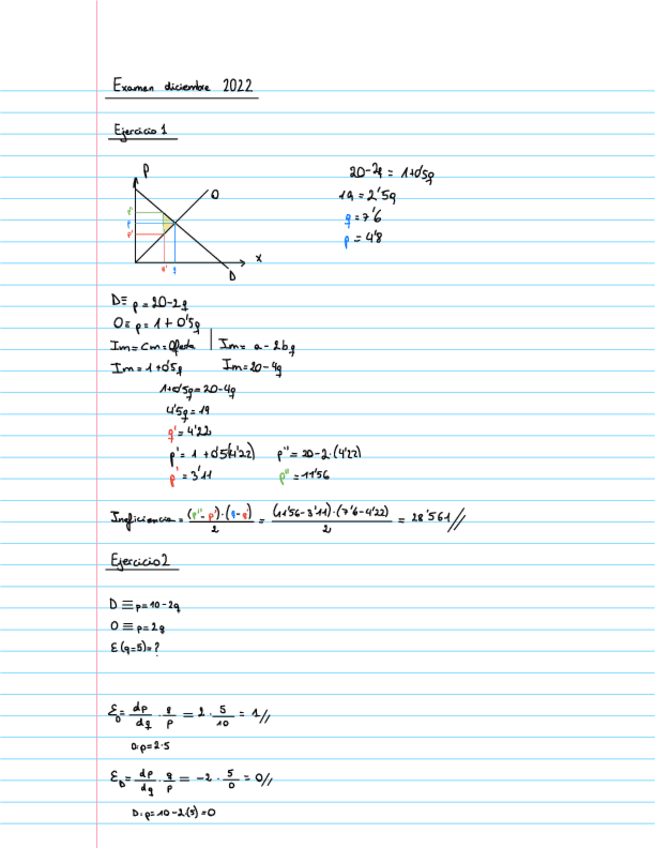 Examen diciembre 2022
Ejercicio 1
P
O
p''
p
p'
q' q
x
D
20-2q = 1+0'5q
19 = 2'5q
q = 7'6
p = 4'8
D≡ p = 20-2q
O≡ p = 1 + 0'5q
Im = Cm = Oferta | Im = a - 2bq
Im = 1+0'5q Im = 20-4q
1+0'5q = 20-4q
4'5q = 19
q' = 4'22
p' = 1 + 0'5(4'22) p'' = 20-2·(4'22)
p' = 3'11 p'' = 11'56
Ineficiencia = (p''-p')·(q-q')/2 = (11'56-3'11)·(7'6-4'22)/2 = 28'561//
Ejercicio 2
D ≡ p = 10-2q
O ≡ p = 2q
E (q=5) = ?
Eo = dp/dq · q/p = 2 · 5/10 = 1//
O: p = 2·5
ED = dp/dq · q/p = -2 · 5/0 = 0//
D: p = 10-2(5) = 0